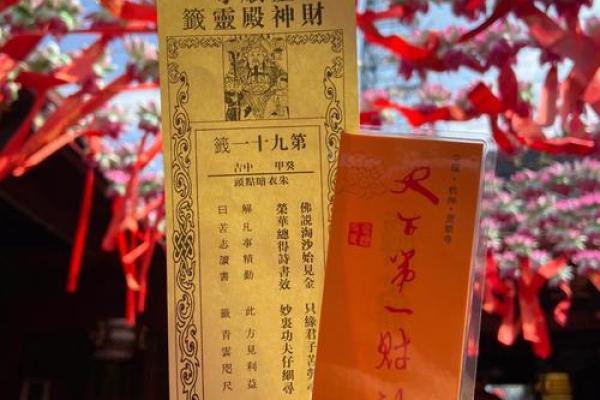 財神殿靈籤
第九十一籤
癸甲 中吉
朱衣暗點頭
佛説淘沙始見金 只緣君子苦勞
榮華總得詩書效 妙裏功夫仔細尋
解 凡事精勤 此方見利益
曰 苦志讀書 籤 青雲咫尺
中國·杭州·靈順寺
天下第一財